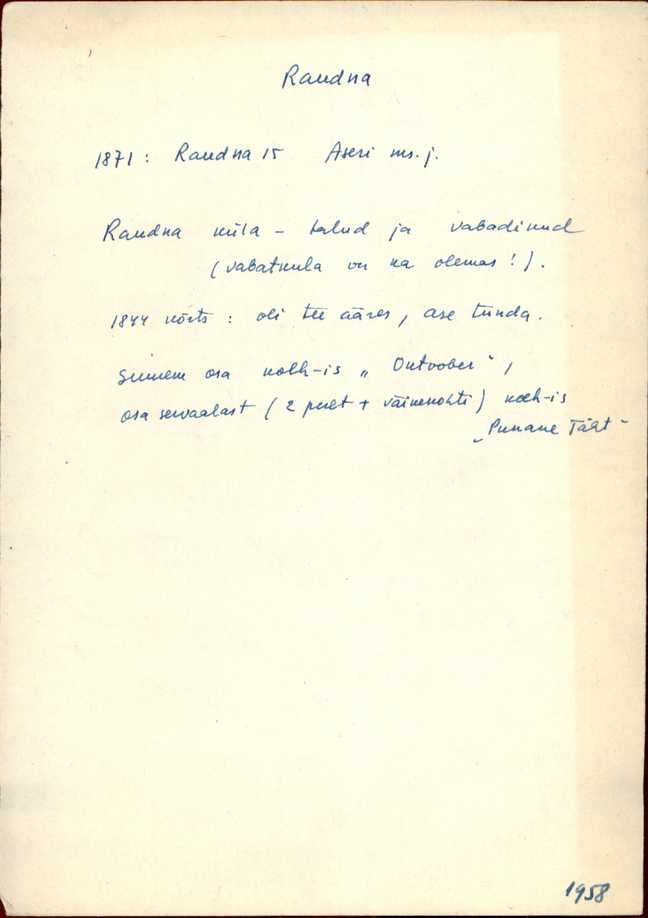 Raudna
1871: Raudna 15 Aseri ms. j.
Raudna küla – talud ja vabadikud
(vabatküla on ka olemas!).
1844 kõrts: oli tee ääres, ase tunda.
Suurem osa kolh-is „Oktoober",
osa servaalast (2 peret + väikekohti) kolh-is
„Punane Täht"
1958